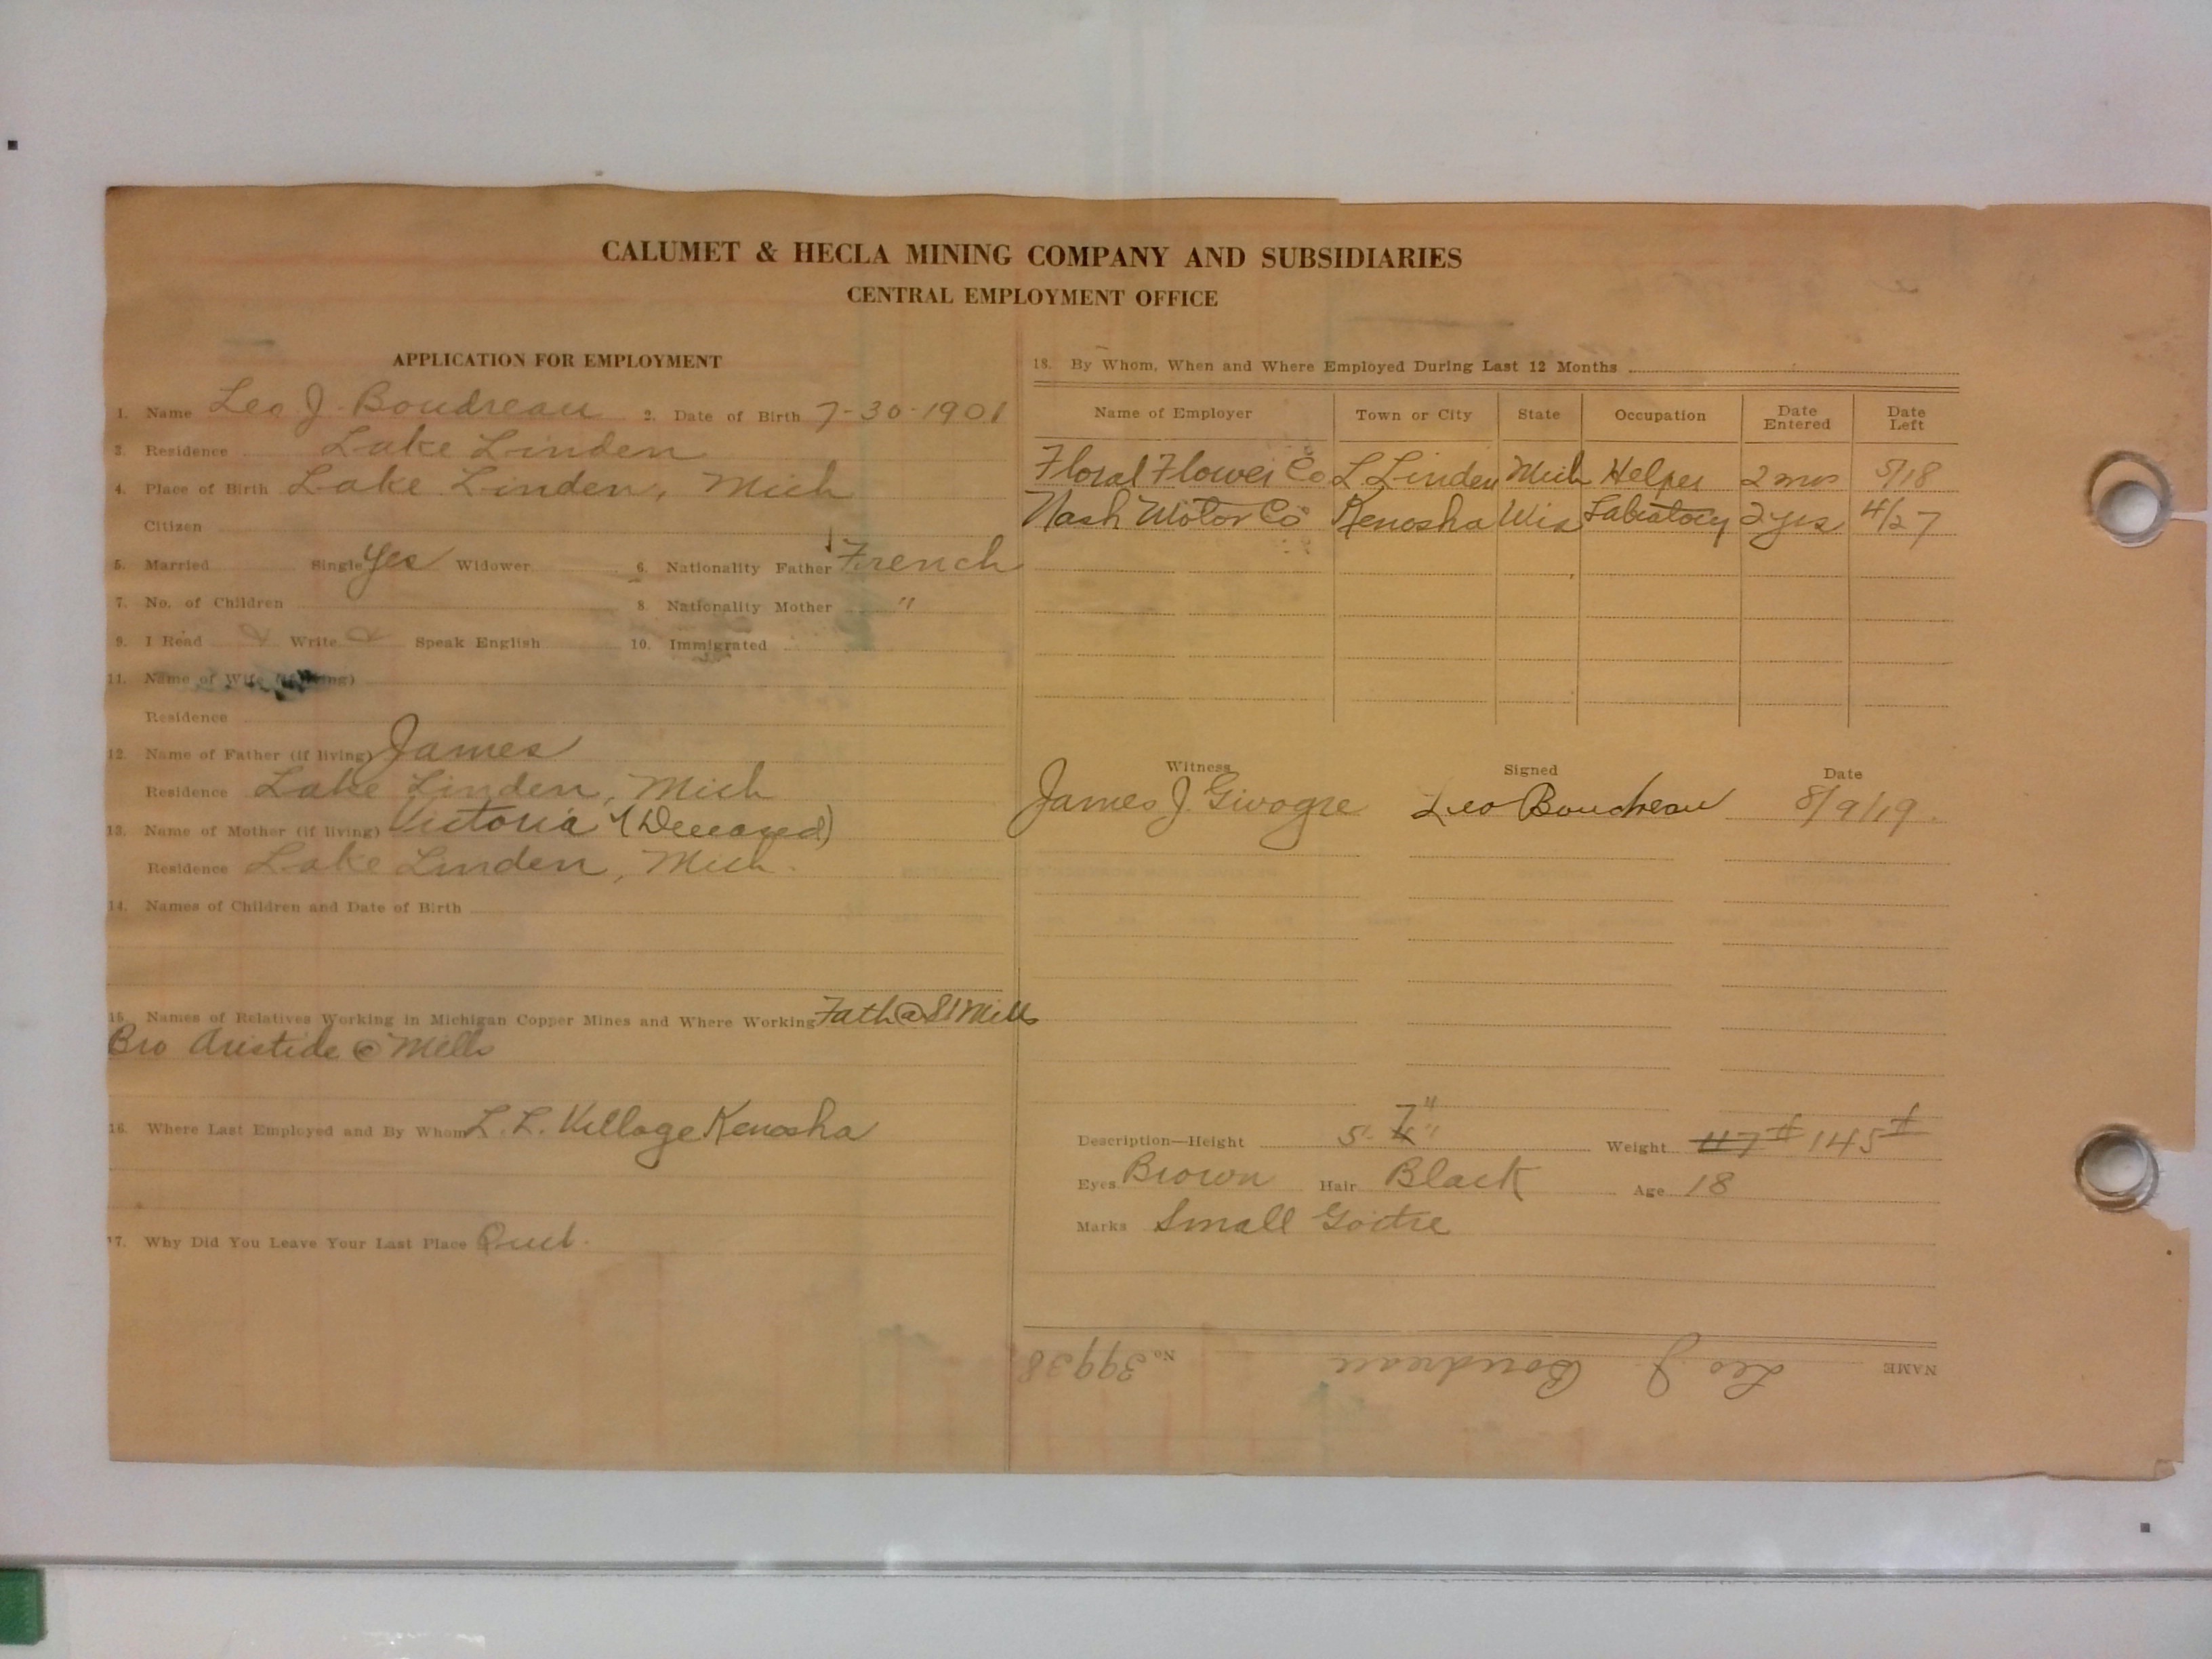 CALUMET & HECLA MINING COMPANY AND SUBSIDIARIES
CENTRAL EMPLOYMENT OFFICE
APPLICATION FOR EMPLOYMENT
1. Name Leo J. Boudreau 2. Date of Birth 7-30-1901
3. Residence Lake Linden
4. Place of Birth Lake Linden, Mich
Citizen
5. Married Single Yes Widower 6. Nationality Father French
7. No. of Children 8. Nationality Mother "
9. I Read Write Speak English 10. Immigrated
11. Name of Wife
Residence
12. Name of Father (if living) James
Residence Lake Linden, Mich
13. Name of Mother (if living) Victoria (Deceased)
Residence Lake Linden, Mich.
14. Names of Children and Date of Birth
15. Names of Relatives Working in Michigan Copper Mines and Where Working Fath @ St Mills
Bro Aristide @ Mills
16. Where Last Employed and By Whom L. L. Village Kenosha
17. Why Did You Leave Your Last Place Quit.
18. By Whom, When and Where Employed During Last 12 Months
Name of Employer Town or City State Occupation Date Entered Date Left
Floral Flower Co L Linden Mich Helper 2 mos 5/18
Nash Motor Co Kenosha Wis Labratory 2 yrs 4/27
Witness Signed Date
James J. Leo Boudreau 8/9/19.
Description—Height 5' 7" Weight 117# 145#
Eyes Brown Hair Black Age 18
Marks Small Goitre
NAME Leo J. Boudreau No 39938